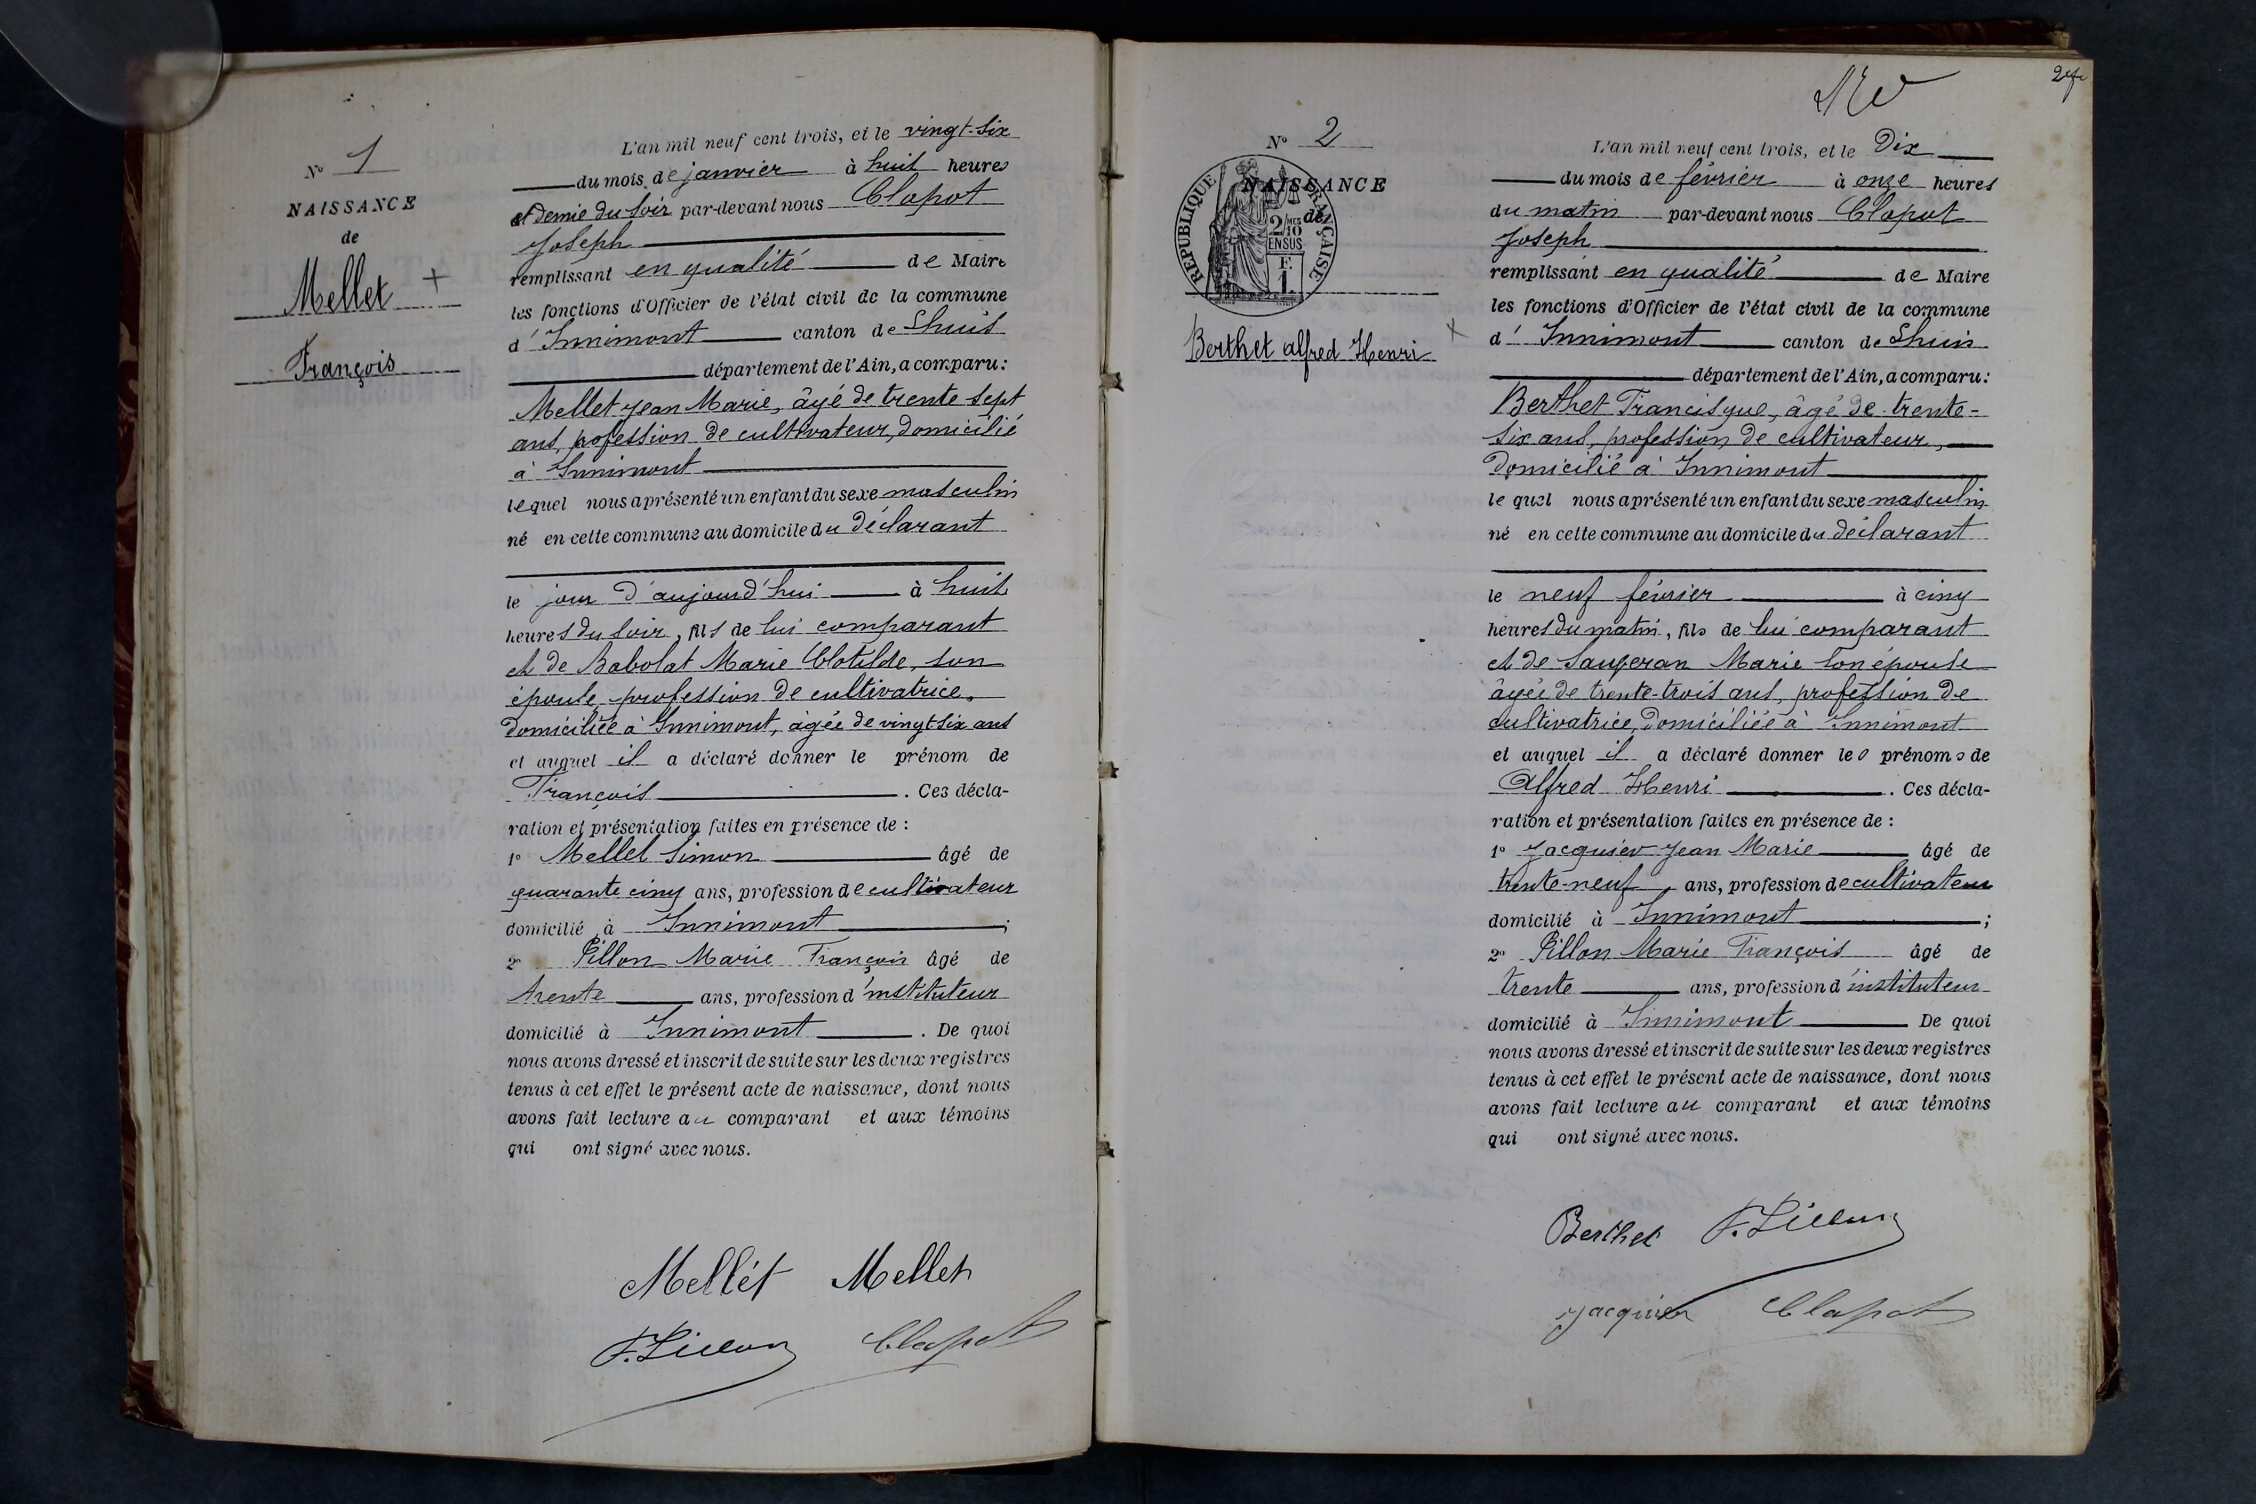 N° 1
NAISSANCE
de
Mellet +
François
L'an mil neuf cent trois, et le vingt-six
du mois de janvier à huit heures
et demie du soir par-devant nous Clapot
Joseph
remplissant en qualité de Maire
les fonctions d'Officier de l'état civil de la commune
d'Innimont canton de Lhuis
département de l'Ain, a comparu:
Mellet Jean Marie, âgé de trente sept
ans, profession de cultivateur, domicilié
à Innimont
lequel nous a présenté un enfant du sexe masculin
né en cette commune au domicile du déclarant
le jour d'aujourd'hui à huit
heures du soir, fils de lui comparant
et de Babolat Marie Clotilde, son
épouse, profession de cultivatrice,
domiciliée à Innimont, âgée de vingt-six ans
et auquel il a déclaré donner le prénom de
François. Ces décla-
ration et présentation faites en présence de :
1° Mellet Simon âgé de
quarante cinq ans, profession de cultivateur
domicilié à Innimont;
2° Pillon Marie François âgé de
trente ans, profession d'instituteur
domicilié à Innimont. De quoi
nous avons dressé et inscrit de suite sur les deux registres
tenus à cet effet le présent acte de naissance, dont nous
avons fait lecture au comparant et aux témoins
qui ont signé avec nous.
Mellét Mellet
F. Pillon Clapot
N° 2
NAISSANCE
de
RÉPUBLIQUE FRANÇAISE
2/10
EN SUS
F.
1
Berthet Alfred Henri +
L'an mil neuf cent trois, et le Dix
du mois de février à onze heures
du matin par-devant nous Clapot
Joseph
remplissant en qualité de Maire
les fonctions d'Officier de l'état civil de la commune
d'Innimont canton de Lhuis
département de l'Ain, a comparu:
Berthet Francisque, âgé de trente-
six ans, profession de cultivateur,
domicilié à Innimont
lequel nous a présenté un enfant du sexe masculin
né en cette commune au domicile du déclarant
le neuf février à cinq
heures du matin, fils de lui comparant
et de Saugeran Marie son épouse
âgée de trente-trois ans, profession de
cultivatrice, domiciliée à Innimont
et auquel il a déclaré donner les prénoms de
Alfred Henri. Ces décla-
ration et présentation faites en présence de :
1° Jacquier Jean Marie âgé de
trente-neuf ans, profession de cultivateur
domicilié à Innimont;
2° Pillon Marie François âgé de
trente ans, profession d'instituteur
domicilié à Innimont De quoi
nous avons dressé et inscrit de suite sur les deux registres
tenus à cet effet le présent acte de naissance, dont nous
avons fait lecture au comparant et aux témoins
qui ont signé avec nous.
Berthet F. Pillon
Jacquier Clapot